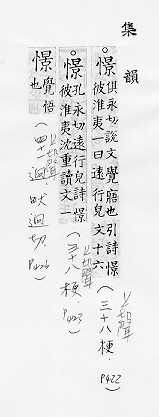 集韻
憬俱永切說文覺寤也引詩憬
彼淮夷一曰遠行皃文十六
(三十八梗 上聲 P422)
憬孔永切遠行皃詩憬
彼淮夷沈重讀文一
(三十八梗 上聲 P423)
憬覺悟
也
(四十一迥 畎迥切 P426)